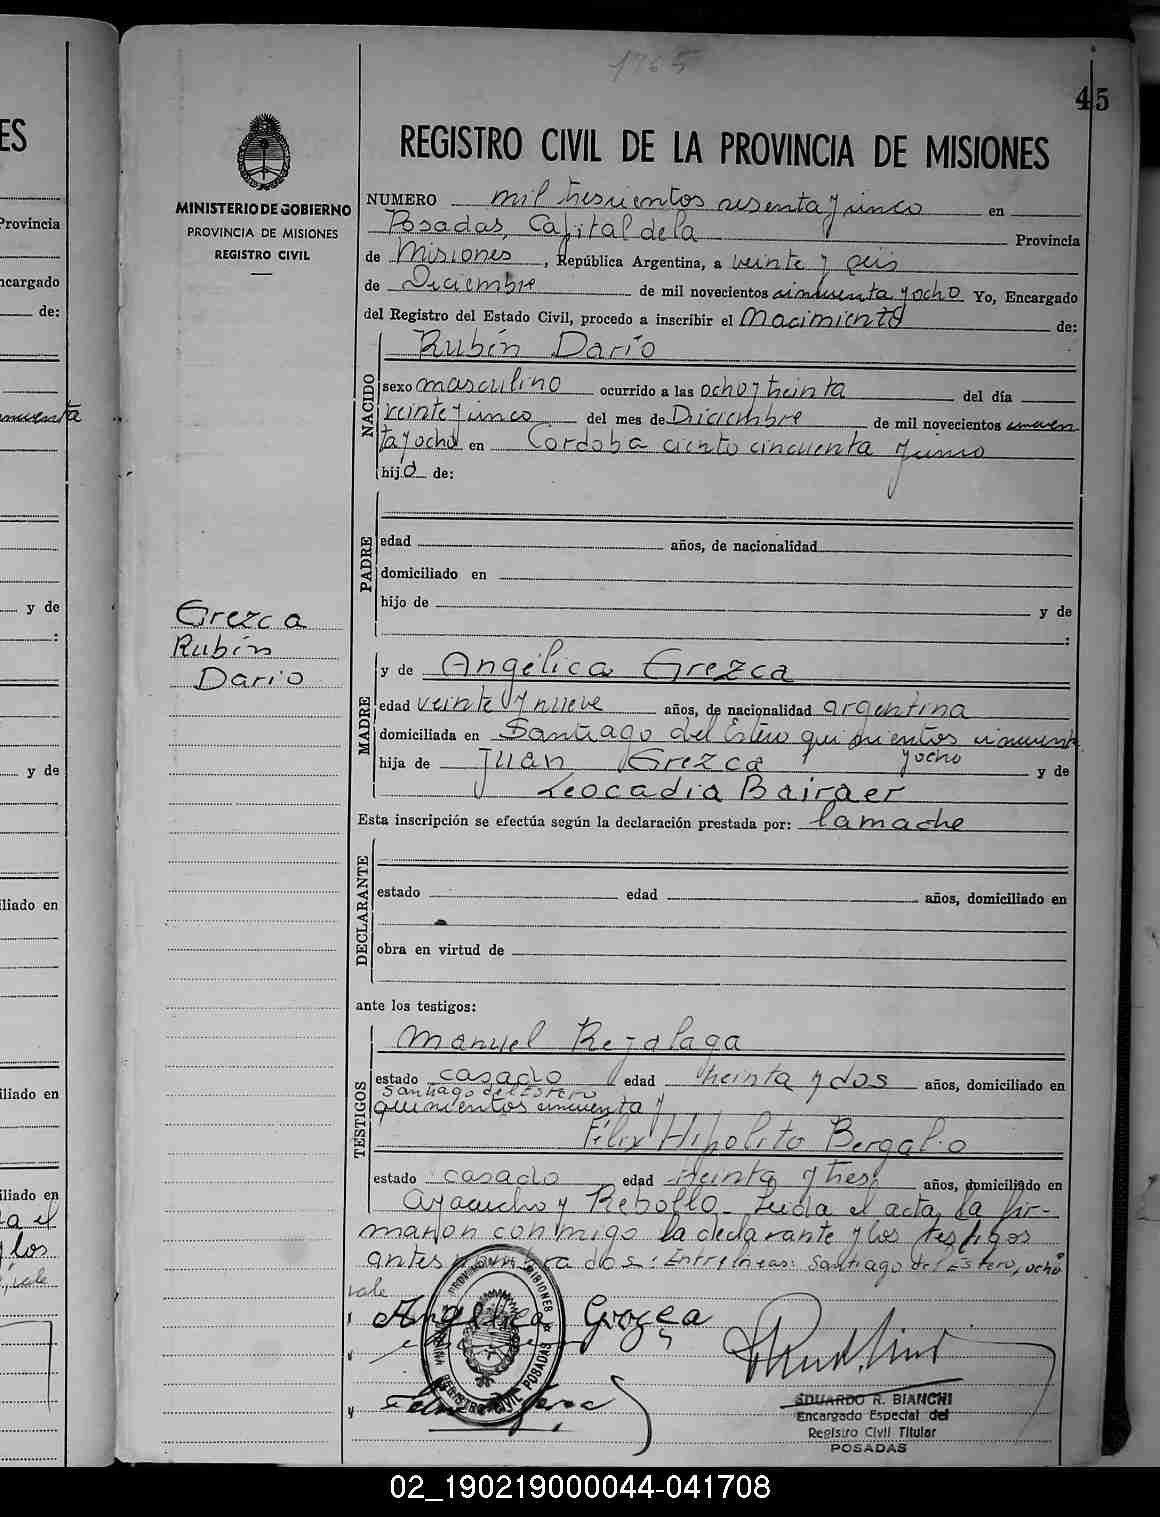 1765
45
REGISTRO CIVIL DE LA PROVINCIA DE MISIONES
MINISTERIO DE GOBIERNO
PROVINCIA DE MISIONES
REGISTRO CIVIL
NUMERO mil trescientos sesenta y cinco en
Posadas, Capital de la Provincia
de Misiones, República Argentina, a veinte y seis
de Diciembre de mil novecientos cincuenta y ocho Yo, Encargado
del Registro del Estado Civil, procedo a inscribir el Nacimiento de:
NACIDO
Rubín Darío
sexo masculino ocurrido a las ocho y treinta del día
veinte y cinco del mes de Diciembre de mil novecientos cincuen
ta y ocho en Cordoba ciento cincuenta y cinco
hijo de:
PADRE
edad años, de nacionalidad
domiciliado en
hijo de y de
:
Grezca
Rubín
Dario
MADRE
y de Angélica Grezca
edad veinte y nueve años, de nacionalidad argentina
domiciliada en Santiago del Estero quinientos cincuenta
y ocho
hija de Juan Grezca y de
Leocadia Bairaer
Esta inscripción se efectúa según la declaración prestada por: la madre
DECLARANTE
estado edad años, domiciliado en
obra en virtud de
ante los testigos:
TESTIGOS
Manuel Rezalaga
estado casado edad treinta y dos años, domiciliado en
Santiago del Estero
quinientos cincuenta y
Félix Hipolito Bergalio
estado casado edad treinta y tres años, domiciliado en
Ayacucho y Rebollo. Leida el acta, la fir-
maron conmigo la declarante y los testigos
antes nombrados: Entrelineas: Santiago del Estero, ocho
vale
Angelica Grozca
EDUARDO R. BIANCHI
Encargado Especial del
Registro Civil Titular
POSADAS
PROVINCIA DE MISIONES
REGISTRO CIVIL POSADAS
ES
Provincia
ncargado
de:
cincuenta
y de
:
y de
iliado en
iliado en
iliado en
a el
y los
vale
02_190219000044-041708